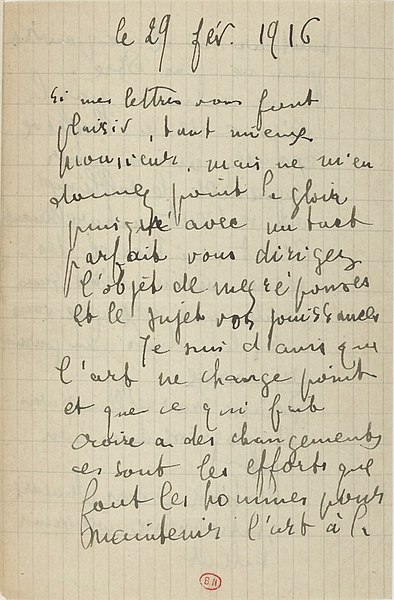 le 29 fév. 1916
si mes lettres vous font
plaisir, tant mieux
monsieur, mais ne m'en
donnez point la gloire
puisqu'avec un tact
parfait vous dirigez
l'objet de mes réponses
et le sujet vos jouissances
Je suis d'avis que
l'art ne change point
et que ce qui fait
croire à des changements
ces sont les efforts que
font les hommes pour
maintenir l'art à la
B.N